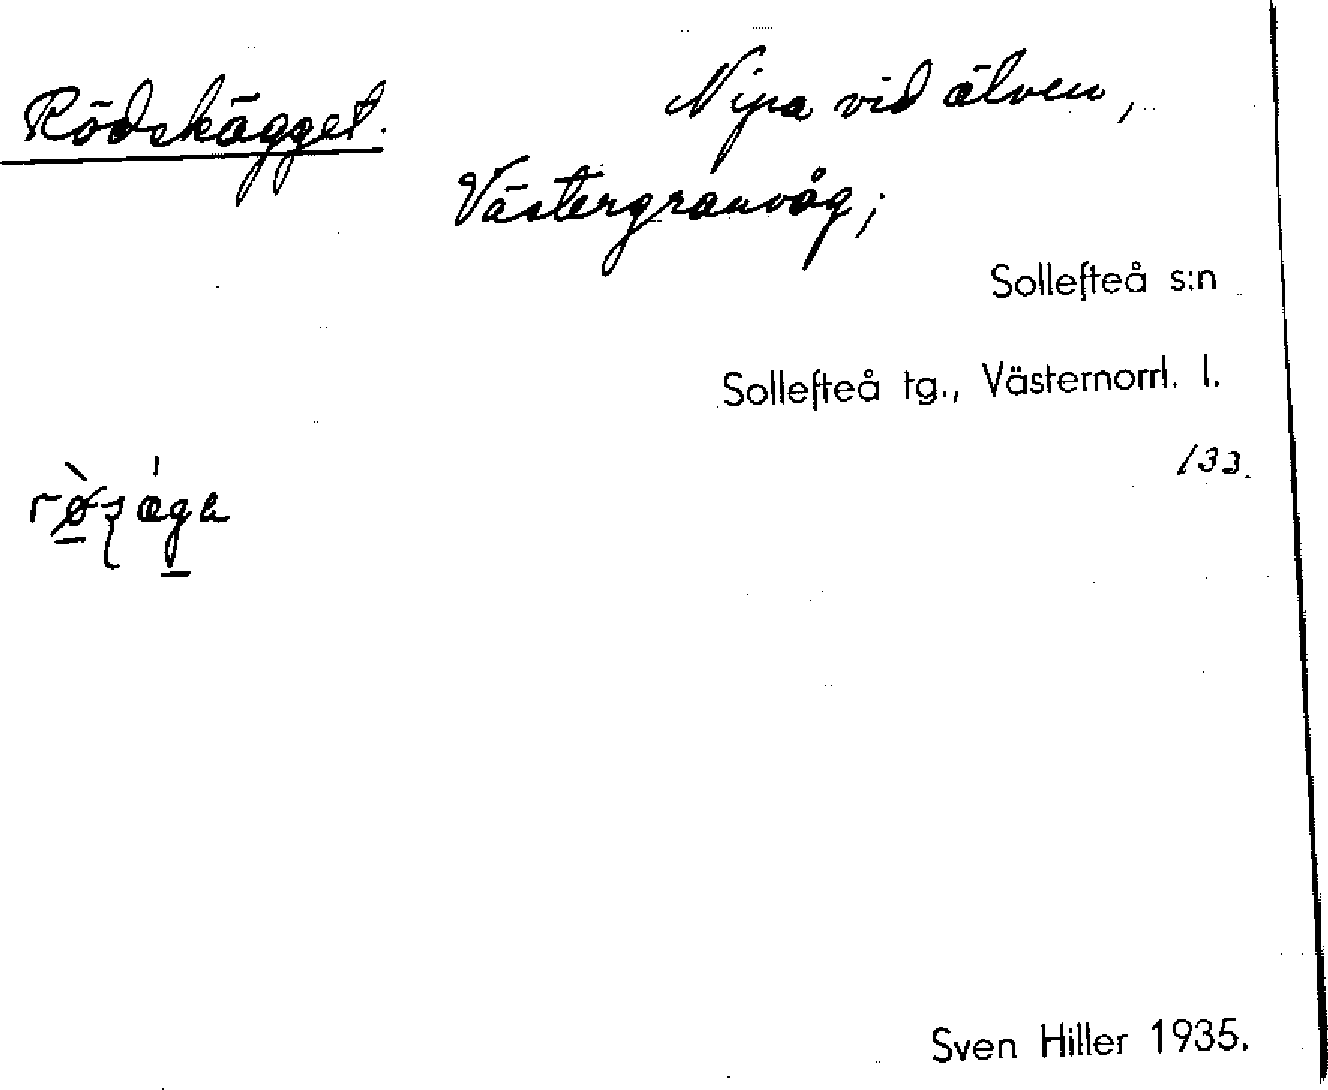 Rödskägget.
Nipa vid älven,
Västergranvåg;
Sollefteå s:n
Sollefteå tg., Västernorrl. l.
133.
Sven Hiller 1935.